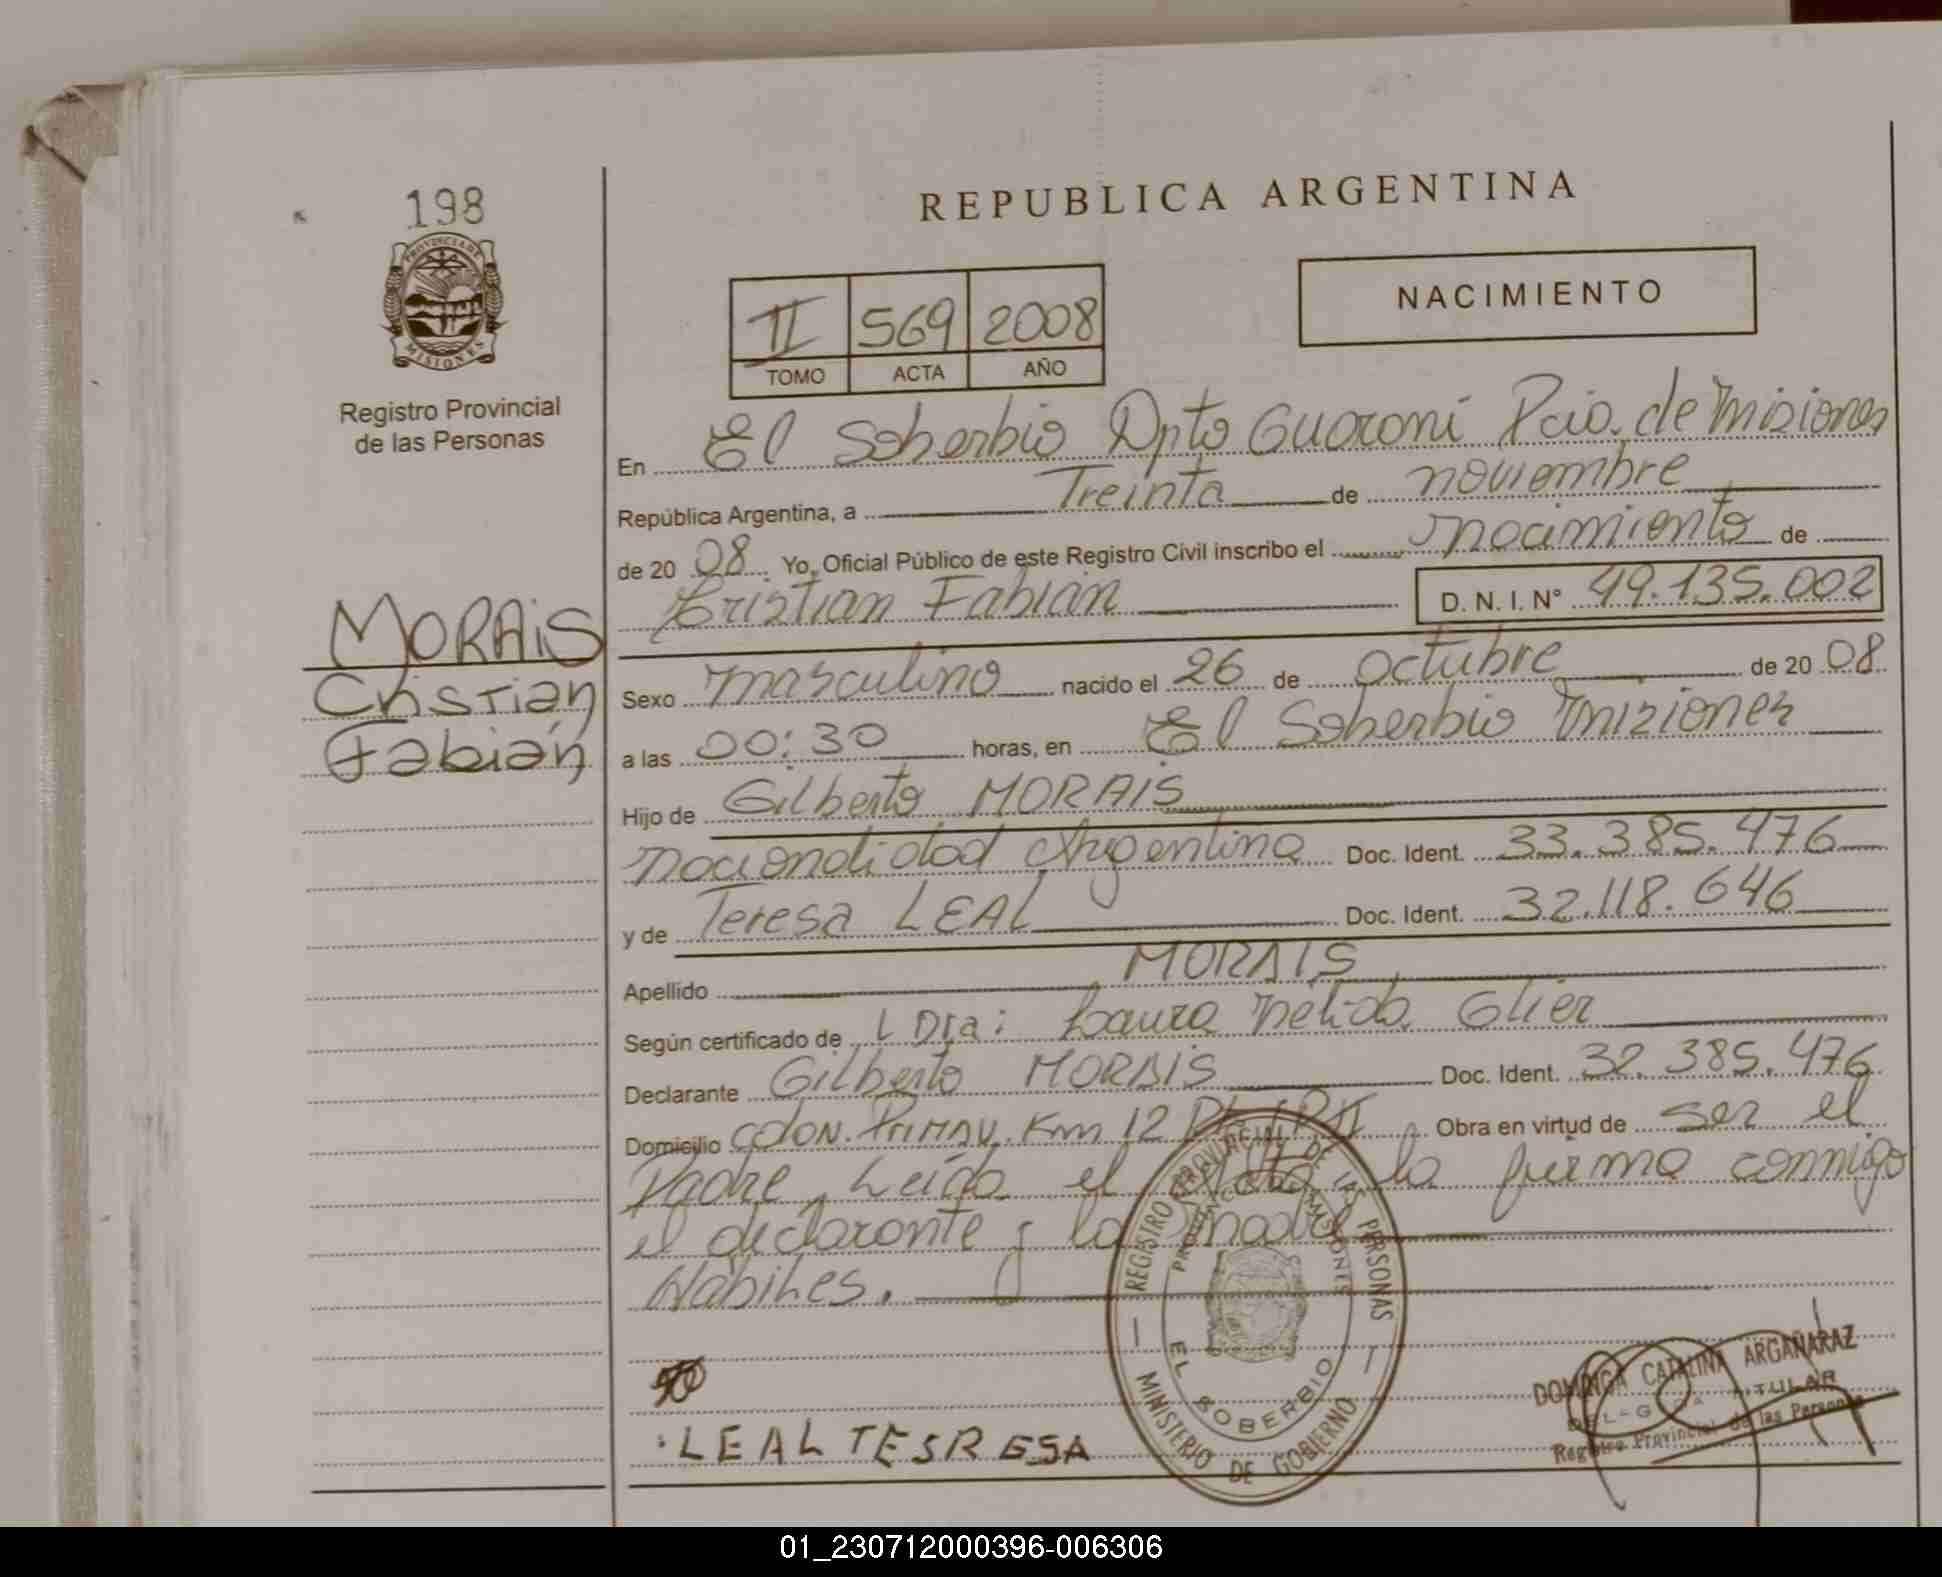 198
PROVINCIA DE
MISIONES
Registro Provincial
de las Personas
MORAIS
Cristian
Fabián
REPUBLICA ARGENTINA
NACIMIENTO
II 569 2008
TOMO ACTA AÑO
En El Soberbio Dpto Guaraní Pcia. de Misiones
República Argentina, a Treinta de noviembre
de 20 08 Yo, Oficial Público de este Registro Civil inscribo el nacimiento de
Cristian Fabián D. N. I. N° 49.135.002
Sexo masculino nacido el 26 de octubre de 20 08
a las 00:30 horas, en El Soberbio Misiones
Hijo de Gilberto MORAIS
nacionalidad Argentina Doc. Ident. 33.385.476
y de Teresa LEAL Doc. Ident. 32.118.646
Apellido MORAIS
Según certificado de Dra: Laura Nélida Glier
Declarante Gilberto MORAIS Doc. Ident. 32.385.476
Domicilio COLON. PRIMAV. Km 12 Obra en virtud de ser el
Padre, Leída el Acta la firma conmigo
el declarante y la madre
Hábiles.
LEAL TESRESA
REGISTRO PROVINCIAL DE LAS PERSONAS
PROVINCIA DE MISIONES
EL SOBERBIO
MINISTERIO DE GOBIERNO
DOMINGA CATALINA ARGAÑARAZ
DELEGADA TITULAR
Registro Provincial de las Personas
01_230712000396-006306